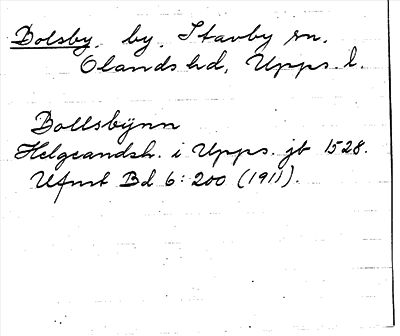 Bolsby, by, Stavby sn.
Olands hd, Upps. l.
Bollsbÿnn
Helgeandsh. i Upps. jb 1528.
Ufmt Bd 6: 200 (1911).